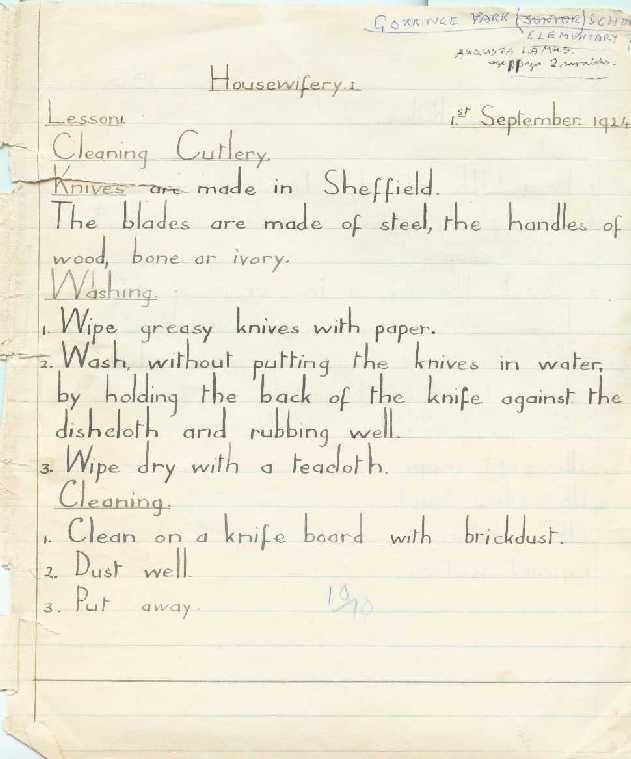 GORRINGE PARK (JUNIOR) SCHO
ELEMENTARY
AUGUSTA
page 2
Housewifery.1.
Lesson1 1.st September. 1924
Cleaning Cutlery.
Knives are made in Sheffield.
The blades are made of steel, the handles of
wood, bone or ivory.
Washing.
1. Wipe greasy knives with paper.
2. Wash, without putting the knives in water,
by holding the back of the knife against the
dishcloth and rubbing well.
3. Wipe dry with a teacloth.
Cleaning.
1. Clean on a knife board with brickdust.
2. Dust well.
3. Put away.
10/10